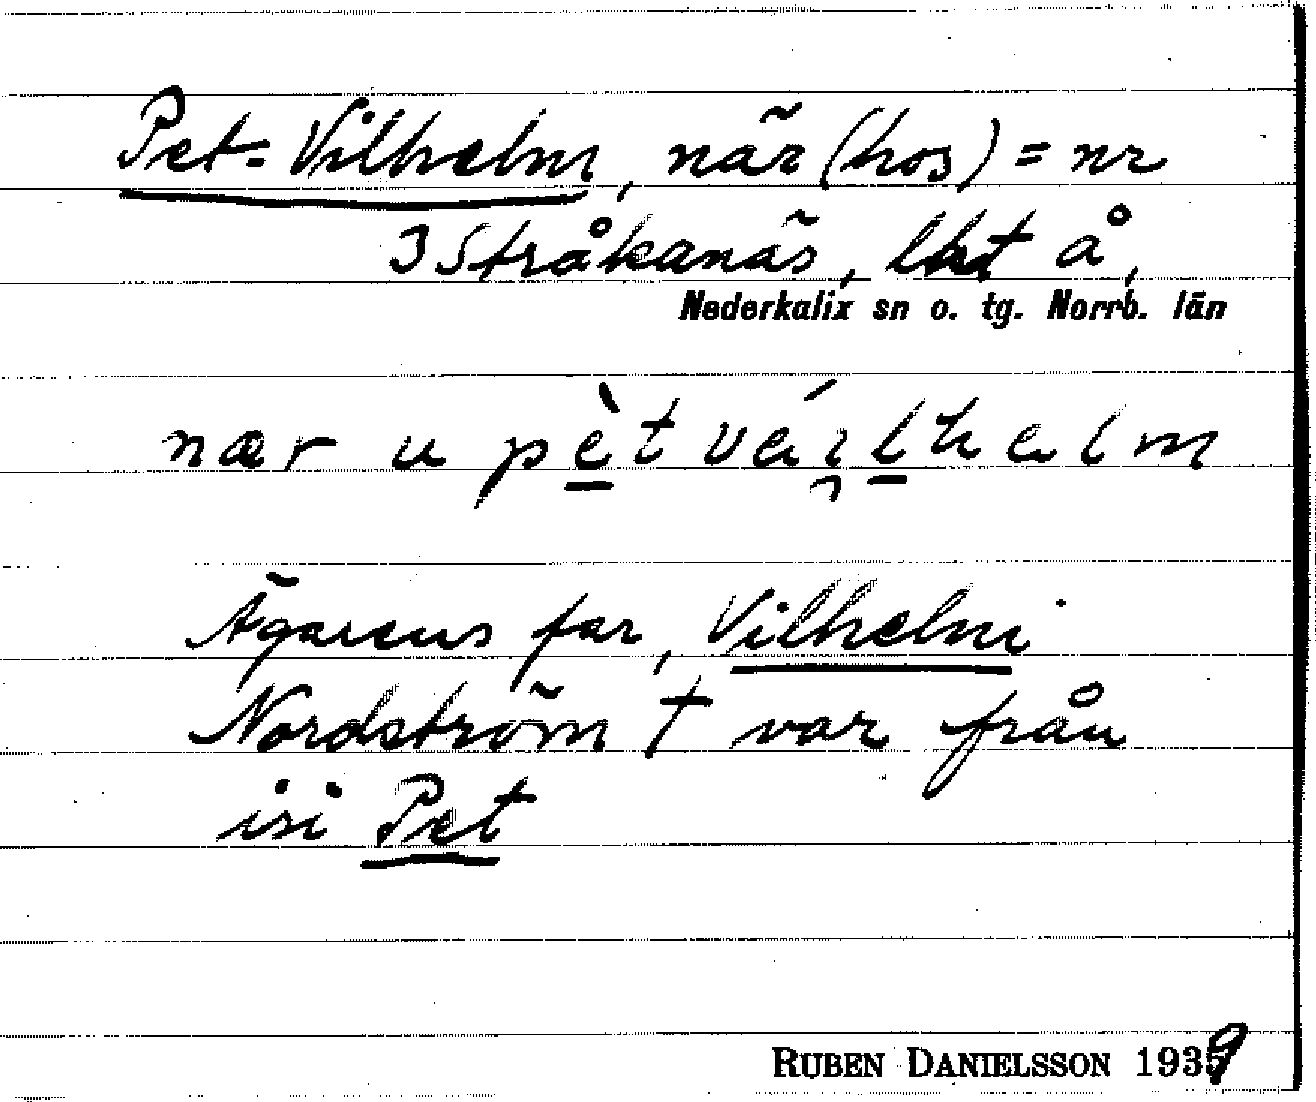 Pet-Vilhelm, när (hos) = nr
3 Stråkanäs, lht å,
Nederkalix sn o. tg. Norrb. län
nær u pèt véɩlhelm
Ägarens far, Vilhelm
Nordström † var från
isi Pet
RUBEN DANIELSSON 1939